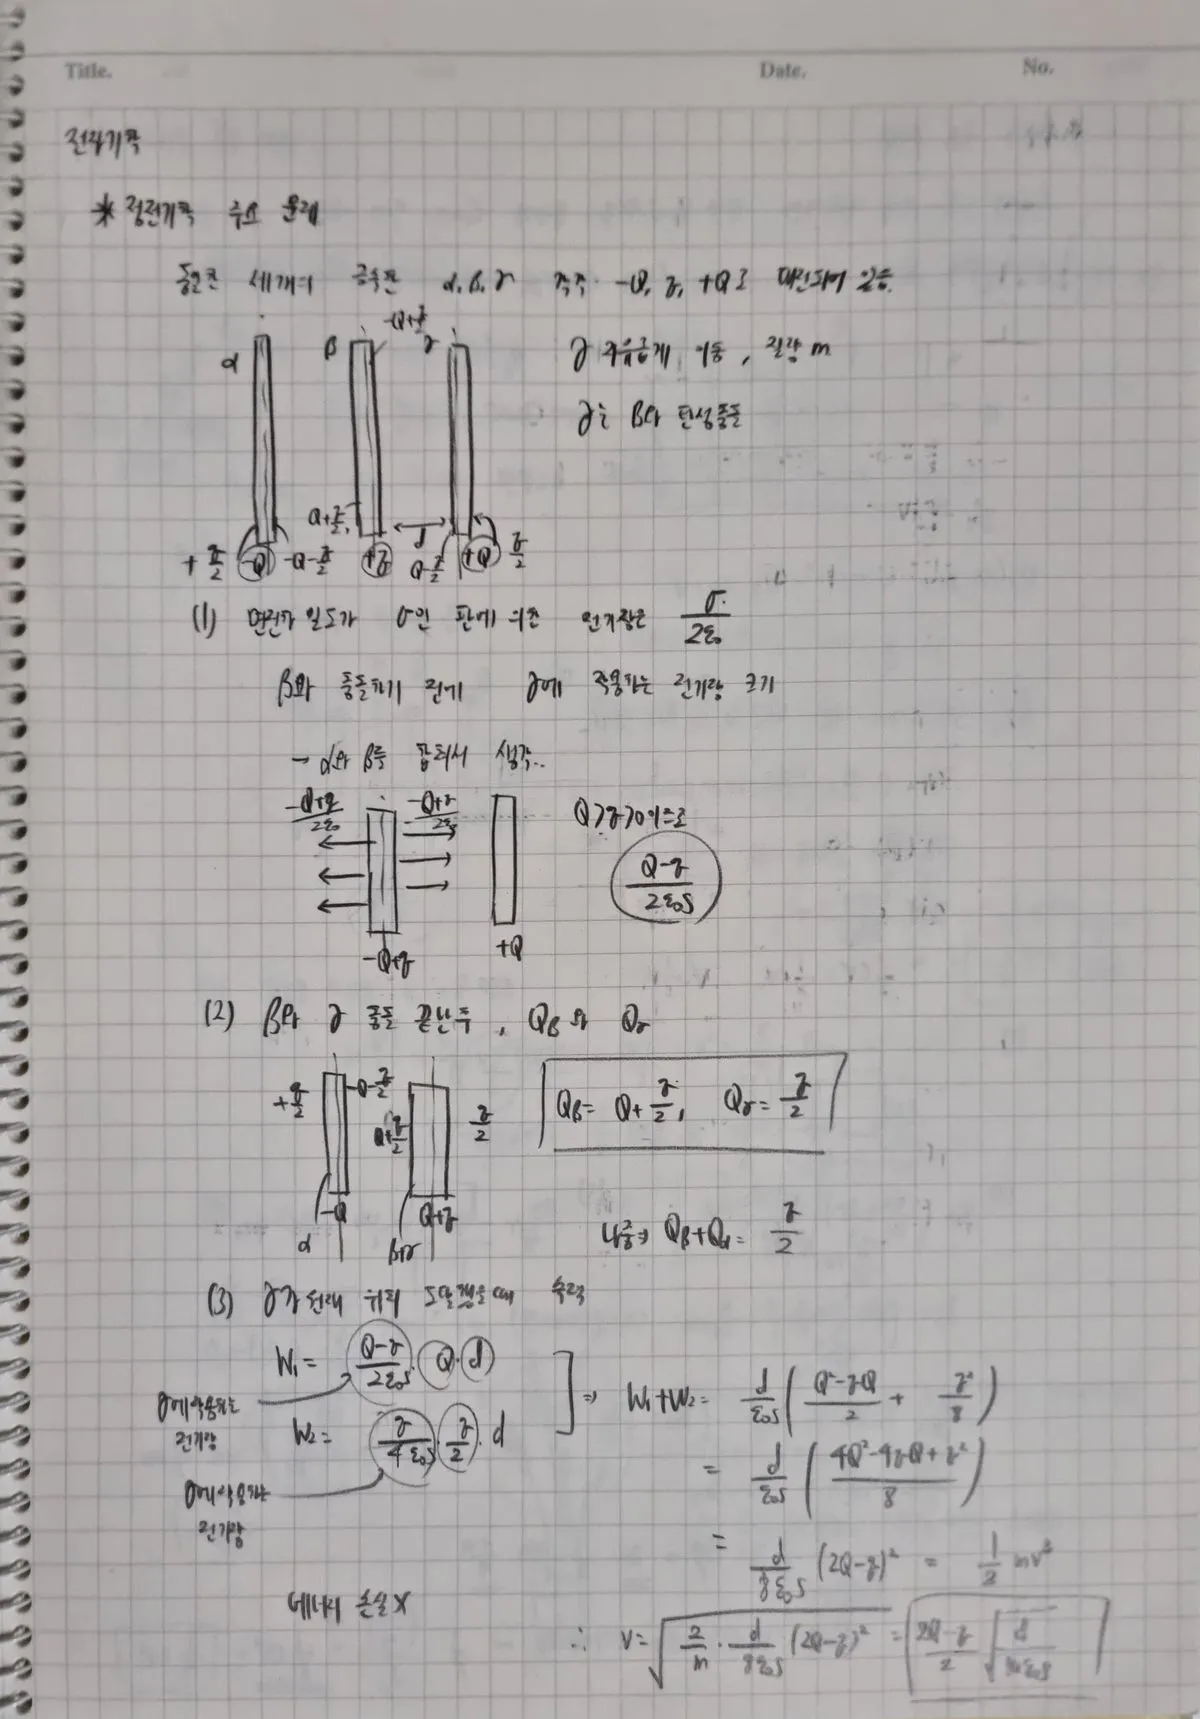 Title. Date. No.
전자기학
* 정전기학 주요 문제
동일한 세개의 금속판 α, β, γ 각각 -Q, q, +Q로 대전되어 있음.
α β -Q+q/2 γ
γ 자유롭게 이동, 질량 m
γ는 β와 탄성충돌
Q+q/2
d
+q/2 -Q -Q-q/2 +q Q-q/2 +Q q/2
(1) 면전하 밀도가 σ인 판에 의한 전기장은 σ/2ε₀
β와 충돌하기 전에 γ에 작용하는 전기장 크기
→ α와 β를 합쳐서 생각..
-Q+q/2ε₀ -Q+q/2ε₀ Q>q>0이므로
Q-q/2ε₀S
-Q+q +Q
(2) β와 γ 충돌 끝난 후, Qβ와 Qγ
+q/2 -Q-q/2 Q+q/2 q/2
Qβ = Q+q/2, Qγ = q/2
-Q Q+q
α β+γ
나중 ⇒ Qβ+Qα = q/2
(3) γ가 원래 위치 도달했을 때 속력
W₁ = Q-q/2ε₀S · Q · d
γ에 작용하는
전기장
W₂ = q/4ε₀S · q/2 · d
⇒ W₁+W₂ = d/ε₀S (Q²-qQ/2 + q²/8)
= d/ε₀S (4Q²-4qQ+q²/8)
γ에 작용하는
전기장
= d/8ε₀S (2Q-q)² = 1/2 mv²
에너지 손실 X
∴ v = √(2/m · d/8ε₀S (2Q-q)²) = 2Q-q/2 √(d/mε₀S)